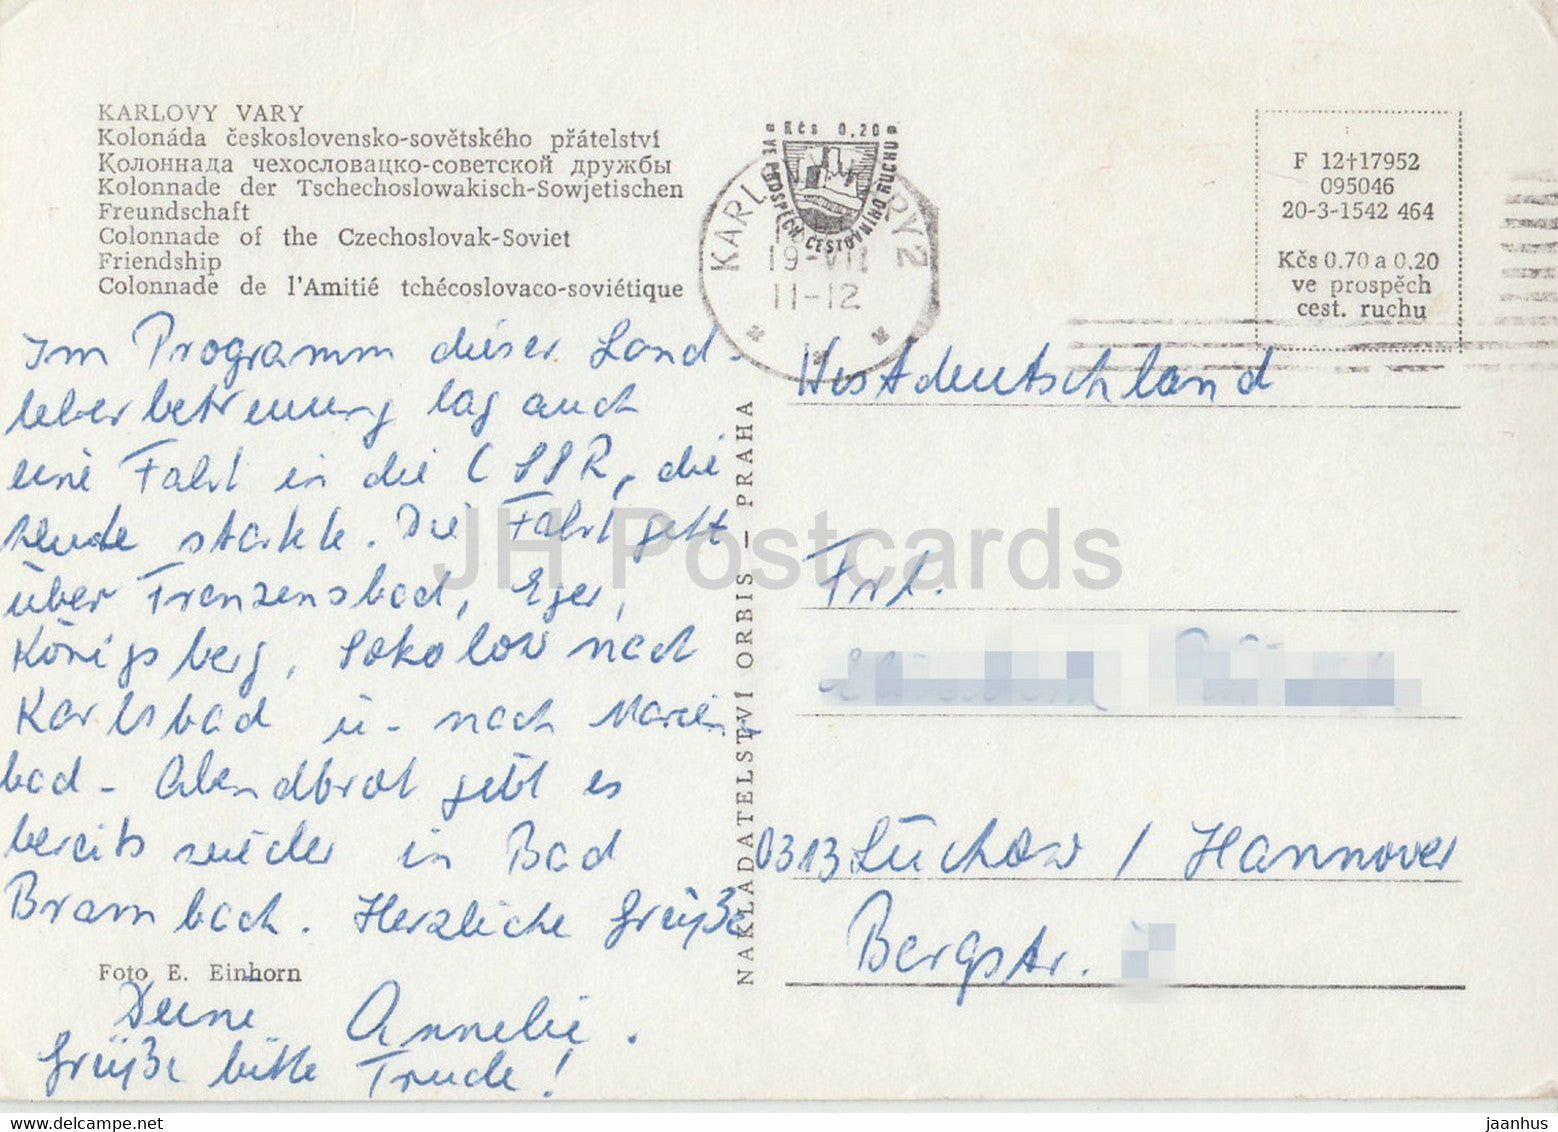 KARLOVY VARY
Kolonáda československo-sovětského přátelství
Колоннада чехословацко-советской дружбы
Kolonnade der Tschechoslowakisch-Sowjetischen
Freundschaft
Colonnade of the Czechoslovak-Soviet
Friendship
Colonnade de l'Amitié tchécoslovaco-soviétique
Im Programm dieser Land-
lebetreuung lag auch
eine Fahrt in die CSSR, die
heute startete. Die Fahrt geht
über Franzensbad, Eger,
Königsberg, Sokolow nach
Karlsbad u. nach Marien-
bad - Abendbrot gibt es
bereits wieder in Bad
Brambach. Herzliche Grüße
Foto E. Einhorn
Deine Annelie.
Grüße bitte Trude!
NAKLADATELSTVÍ ORBIS — PRAHA
Kčs 0.20
VE PROSPĚCH CESTOVNÍHO RUCHU
KARL VARY 2
19-VII
11-12
F 12†17952
095046
20-3-1542 464
Kčs 0.70 a 0.20
ve prospěch
cest. ruchu
Westdeutschland
Frl.
0313 Lüchow / Hannover
Bergstr.
JH Postcards
delcampe.net
jaanhus